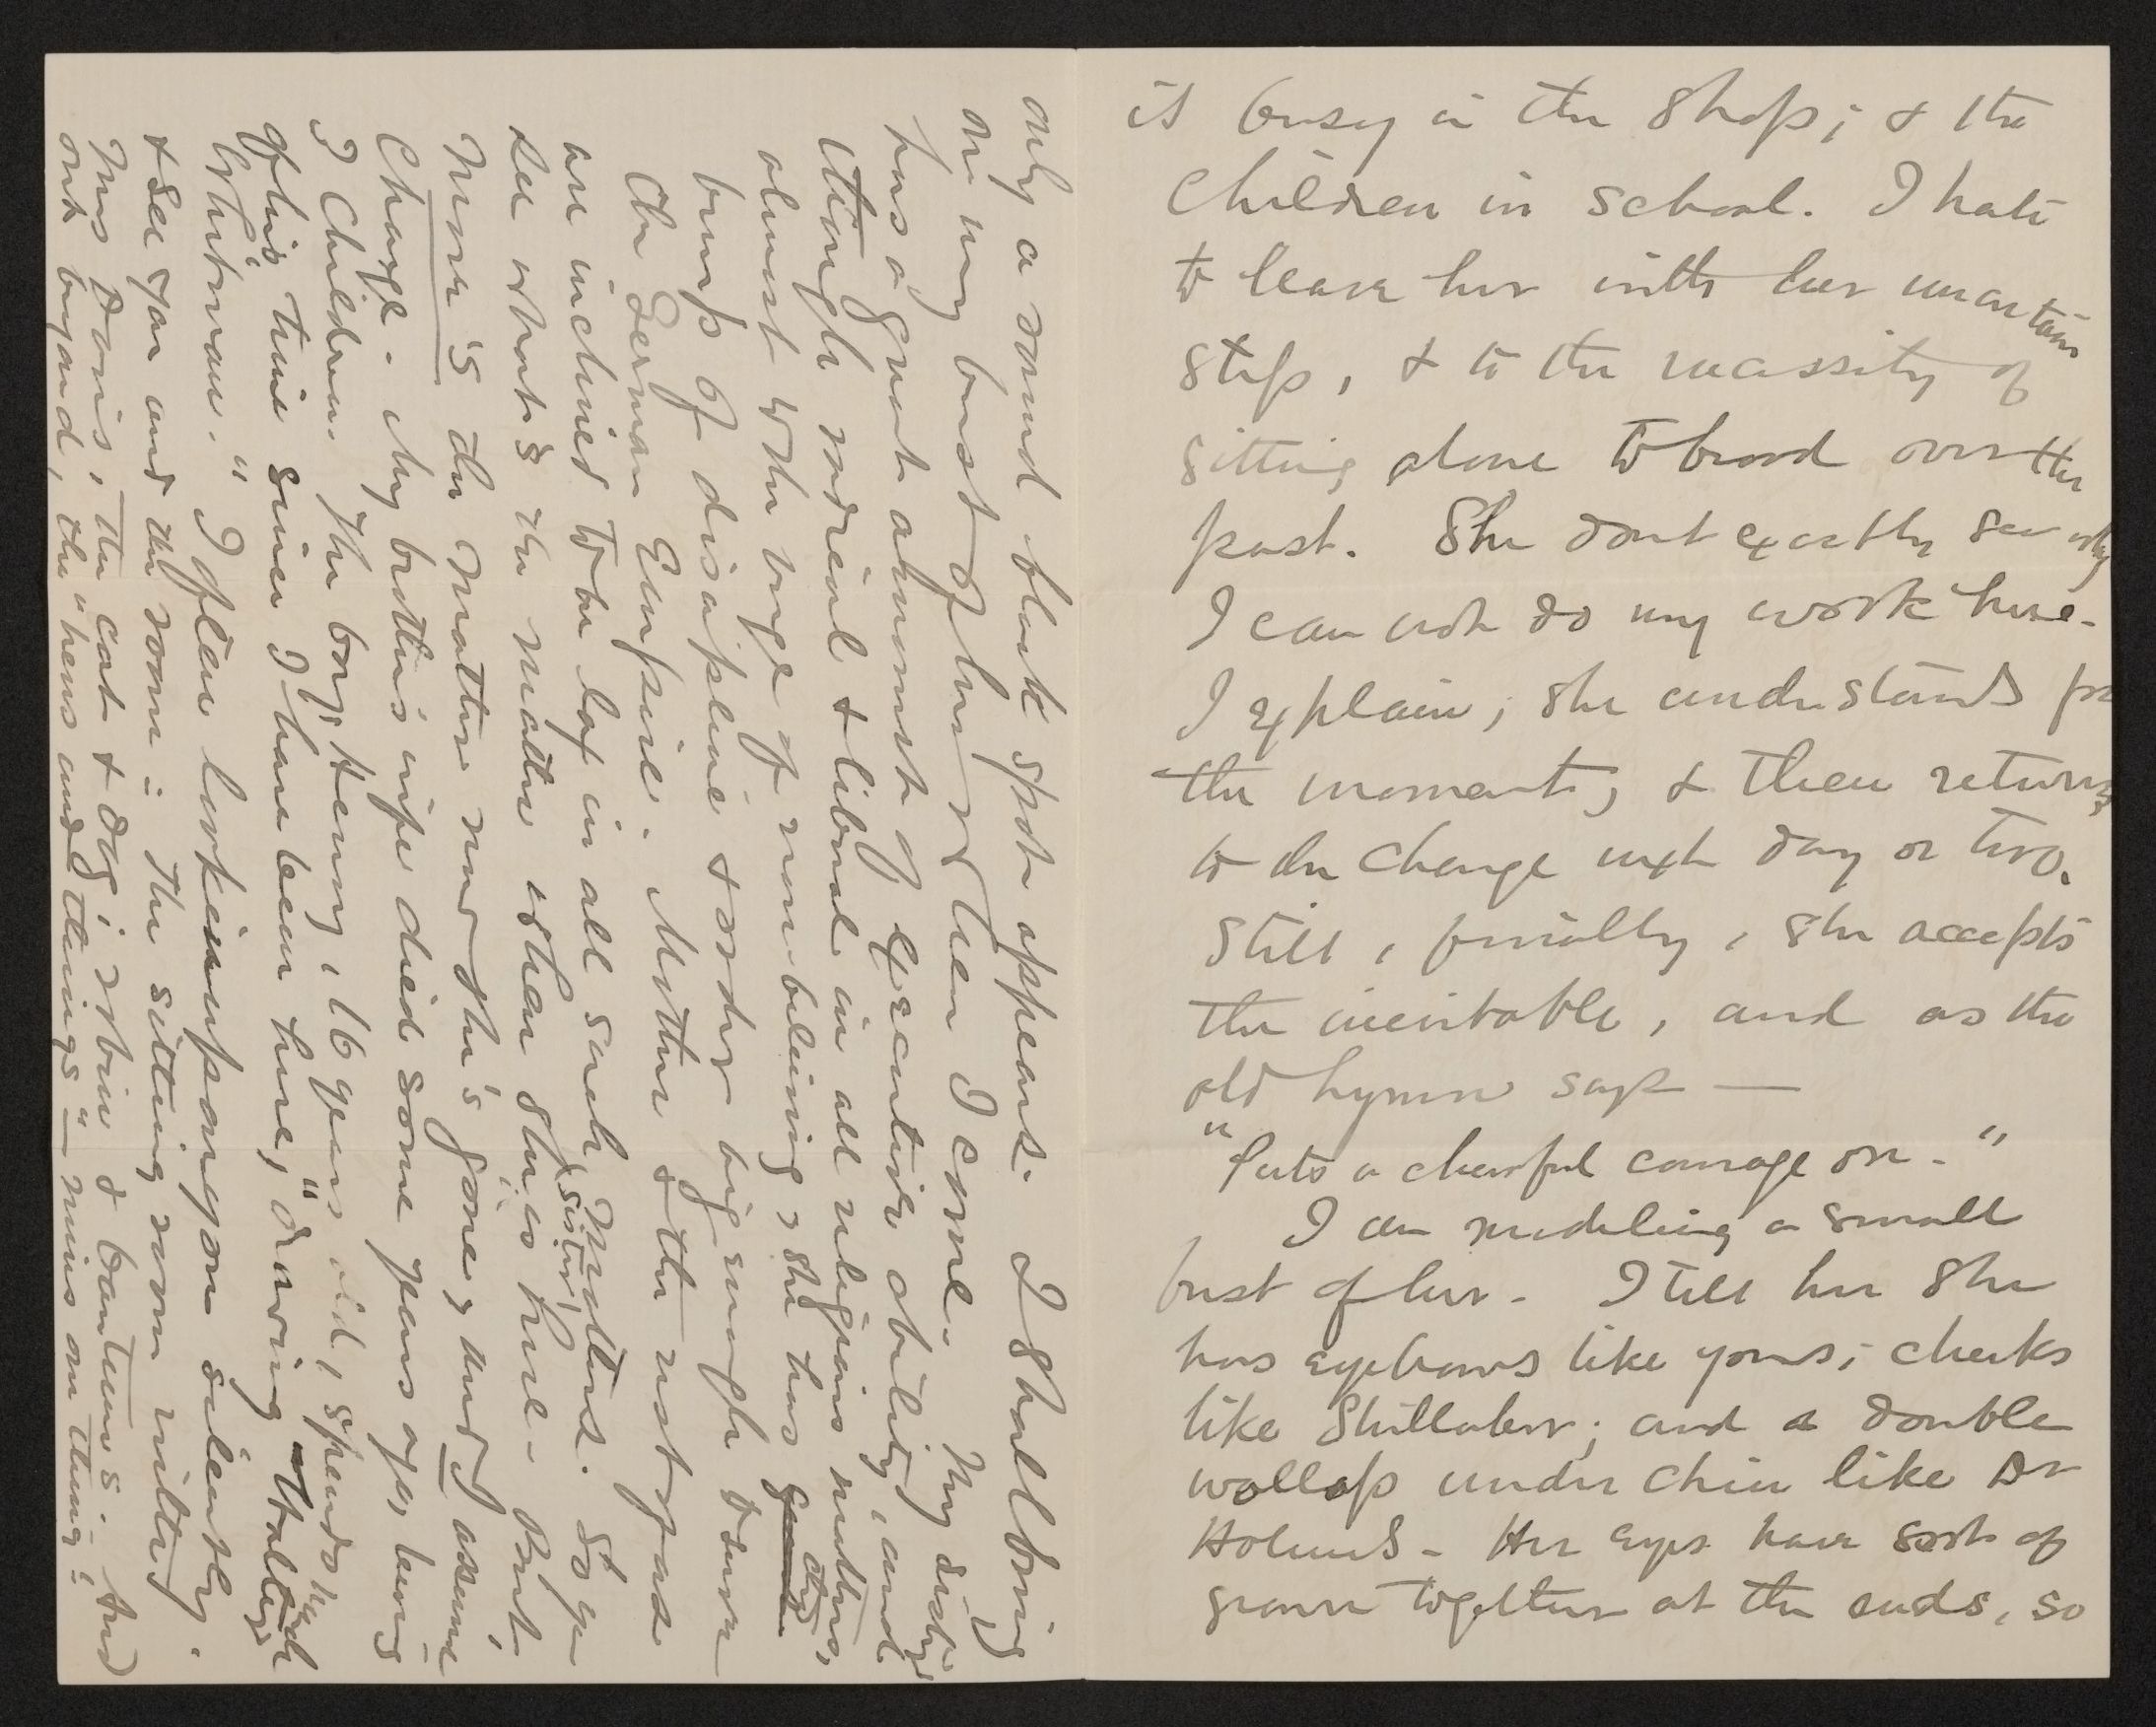 is busy in the shop; & the
children in school. I hate
to leave her with her uncertain
step, & to the necessity of
sitting alone to brood over the
past. She dont exactly see why
I can not do my work here.
I explain; she understands for
the moment; & then returns
to the charge next day or two.
Still, finally, she accepts
the inevitable, and as the
old hymn says —
"Puts a cheerful courage on."
I am modeling a small
bust of her. I tell her she
has eyebrows like yours; cheeks
like Shillaber; and a double
wollop under chin like Dr
Holmes. Her eyes have sort of
grown together at the ends, so
only a round black spot appears. I shall bring
on my bust of her when I come. My sister
has a great amount of executive ability, and
though radical & liberal in all religious matters,
almost to the verge of non-believing, she has
bump of discipline & order big enough to run
the German Empire. Mother & the rest of us
are inclined to be lax in all such matters. So you
see what's the matter when she (sister) is here. But,
Now's the matter now she's gone, and I assume
charge. My brother's wife died some years ago, leaving
3 children. The boy, Henry, 16 years old, spends much
of his time since I have been here, "drawing Walt
Whitman." I often look in upon you silently.
& see you and the room: the sitting room with
Mrs Davis, the cat & dog; robin & bantum's. And
out beyond, the "hens and things" — minus one thing: